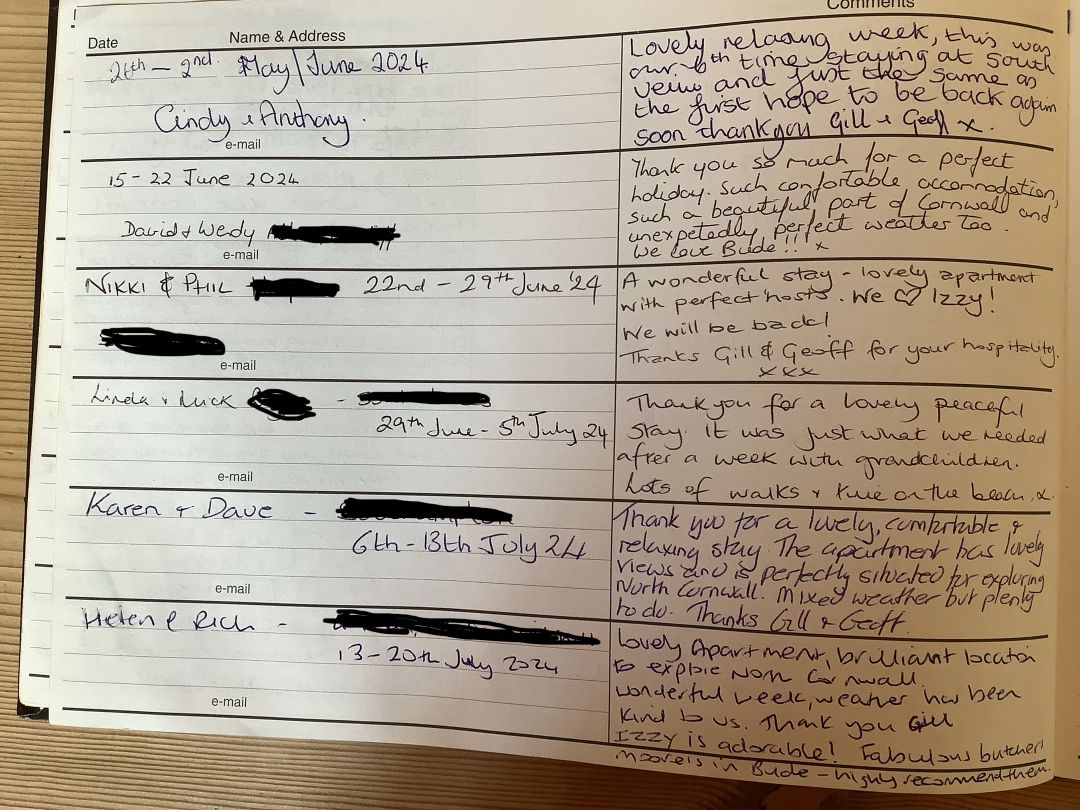 Comments
Date Name & Address
26th - 2nd May/June 2024
Cindy & Anthony.
e-mail
Lovely relaxing week, this was
our 6th time staying at South
View and just the same as
the first hope to be back again
soon thankyou Gill & Geoff x.
15-22 June 2024
David & Wendy
e-mail
Thank you so much for a perfect
holiday. Such comfortable accomodation,
such a beautiful part of Cornwall and
unexpetedly perfect weather too.
We love Bude!!! x
NIKKI & PHIL 22nd - 29th June '24
e-mail
A wonderful stay - lovely apartment
with perfect hosts. We ♡ Izzy!
We will be back!
Thanks Gill & Geoff for your hospitality.
xxx
Linda & Mick -
29th June - 5th July 24
e-mail
Thankyou for a lovely peaceful
stay. It was just what we needed
after a week with grandchildren.
Lots of walks & time on the beach, x.
Karen & Dave -
6th - 13th July 24
e-mail
Thank you for a lovely, comfortable &
relaxing stay. The apartment has lovely
views and is perfectly situated for exploring
North Cornwall. Mixed weather but plenty
to do. Thanks Gill & Geoff.
Helen & Rich -
13-20th July 2024
e-mail
Lovely Apartment, brilliant location
to explore North Cornwall.
Wonderful week, weather has been
kind to us. Thank you Gill
IZZY is adorable! Fabulous butcher
in Bude - highly recommend them.